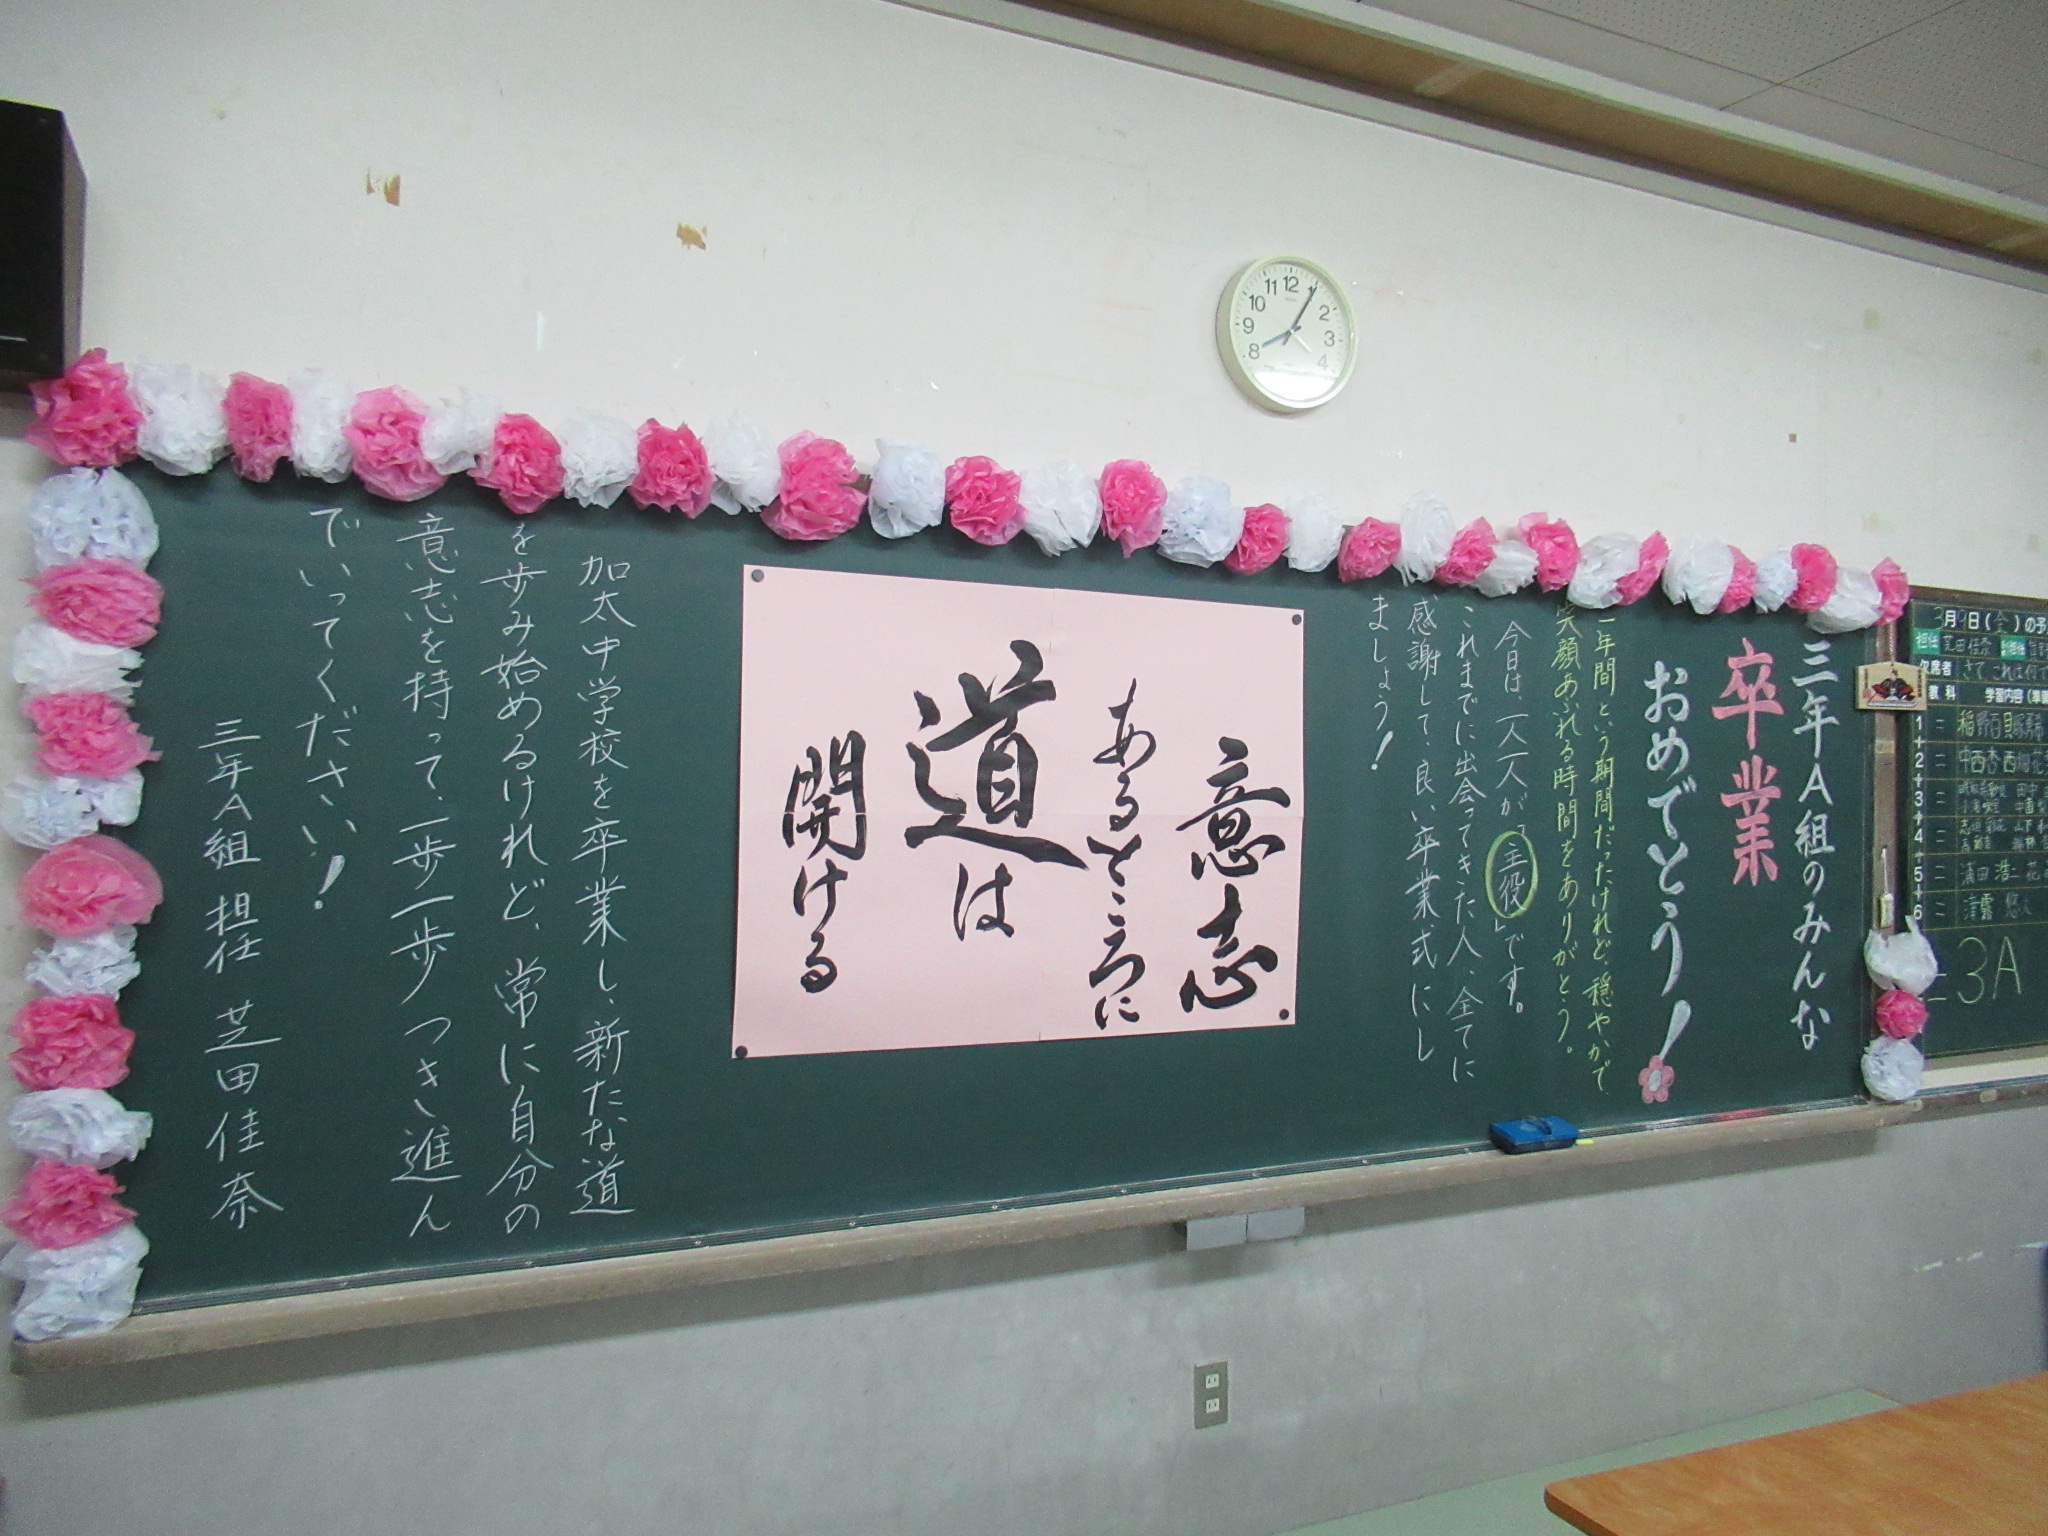 三年A組のみんな
卒業
おめでとう!
一年間という期間だったけれど、穏やかで
笑顔あふれる時間をありがとう。
今日は、一人一人が、「主役」です。
これまでに出会ってきた人、全てに
感謝して、良い卒業式にし
ましょう!
意志
あるところに
道は
開ける
加太中学校を卒業し、新たな道
を歩み始めるけれど、常に自分の
意志を持って、一歩一歩つき進ん
でいってください!
三年A組 担任 芝田佳奈
3月9日(金)の予
担任 芝田佳奈
欠席者 さて これは何で
教科 学習内容(準備
1
2 中西杏 西畑花
3 田中
4
5 浦田浩二 花
6 津露 悠人
3A
11 12 1
10 2
9 3
8 4